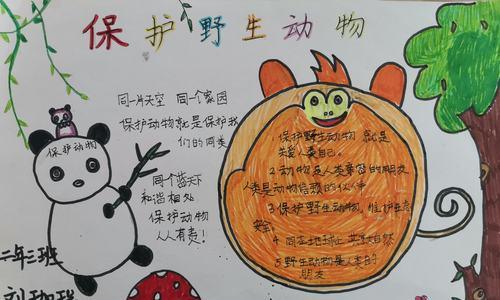 保护野生动物
同一片天空 同一个家园
保护动物就是保护我
们的同类
保护动物
同个蓝天下
和谐相处
保护动物
人人有责!
1 保护野生动物 就是
关爱人类自己。
2 动物是人类亲密的朋友
人类是动物信赖的伙伴
3 保护野生动物,维护生态
安全
4 同在地球上 共享大自然
5 野生动物是人类的
朋友
二年三班